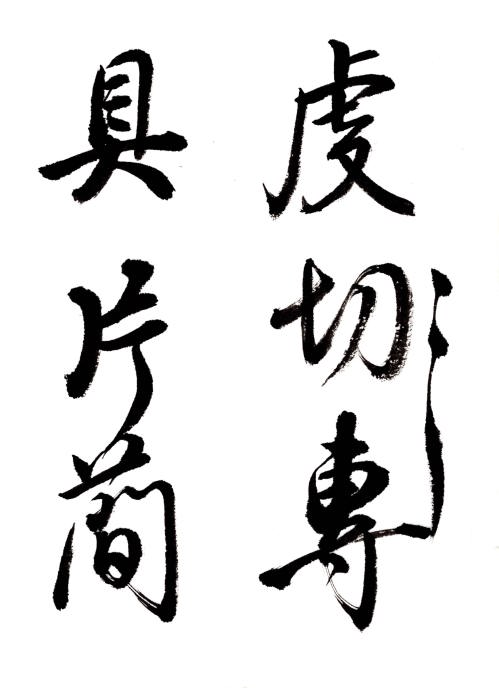 虔切專
具片簡